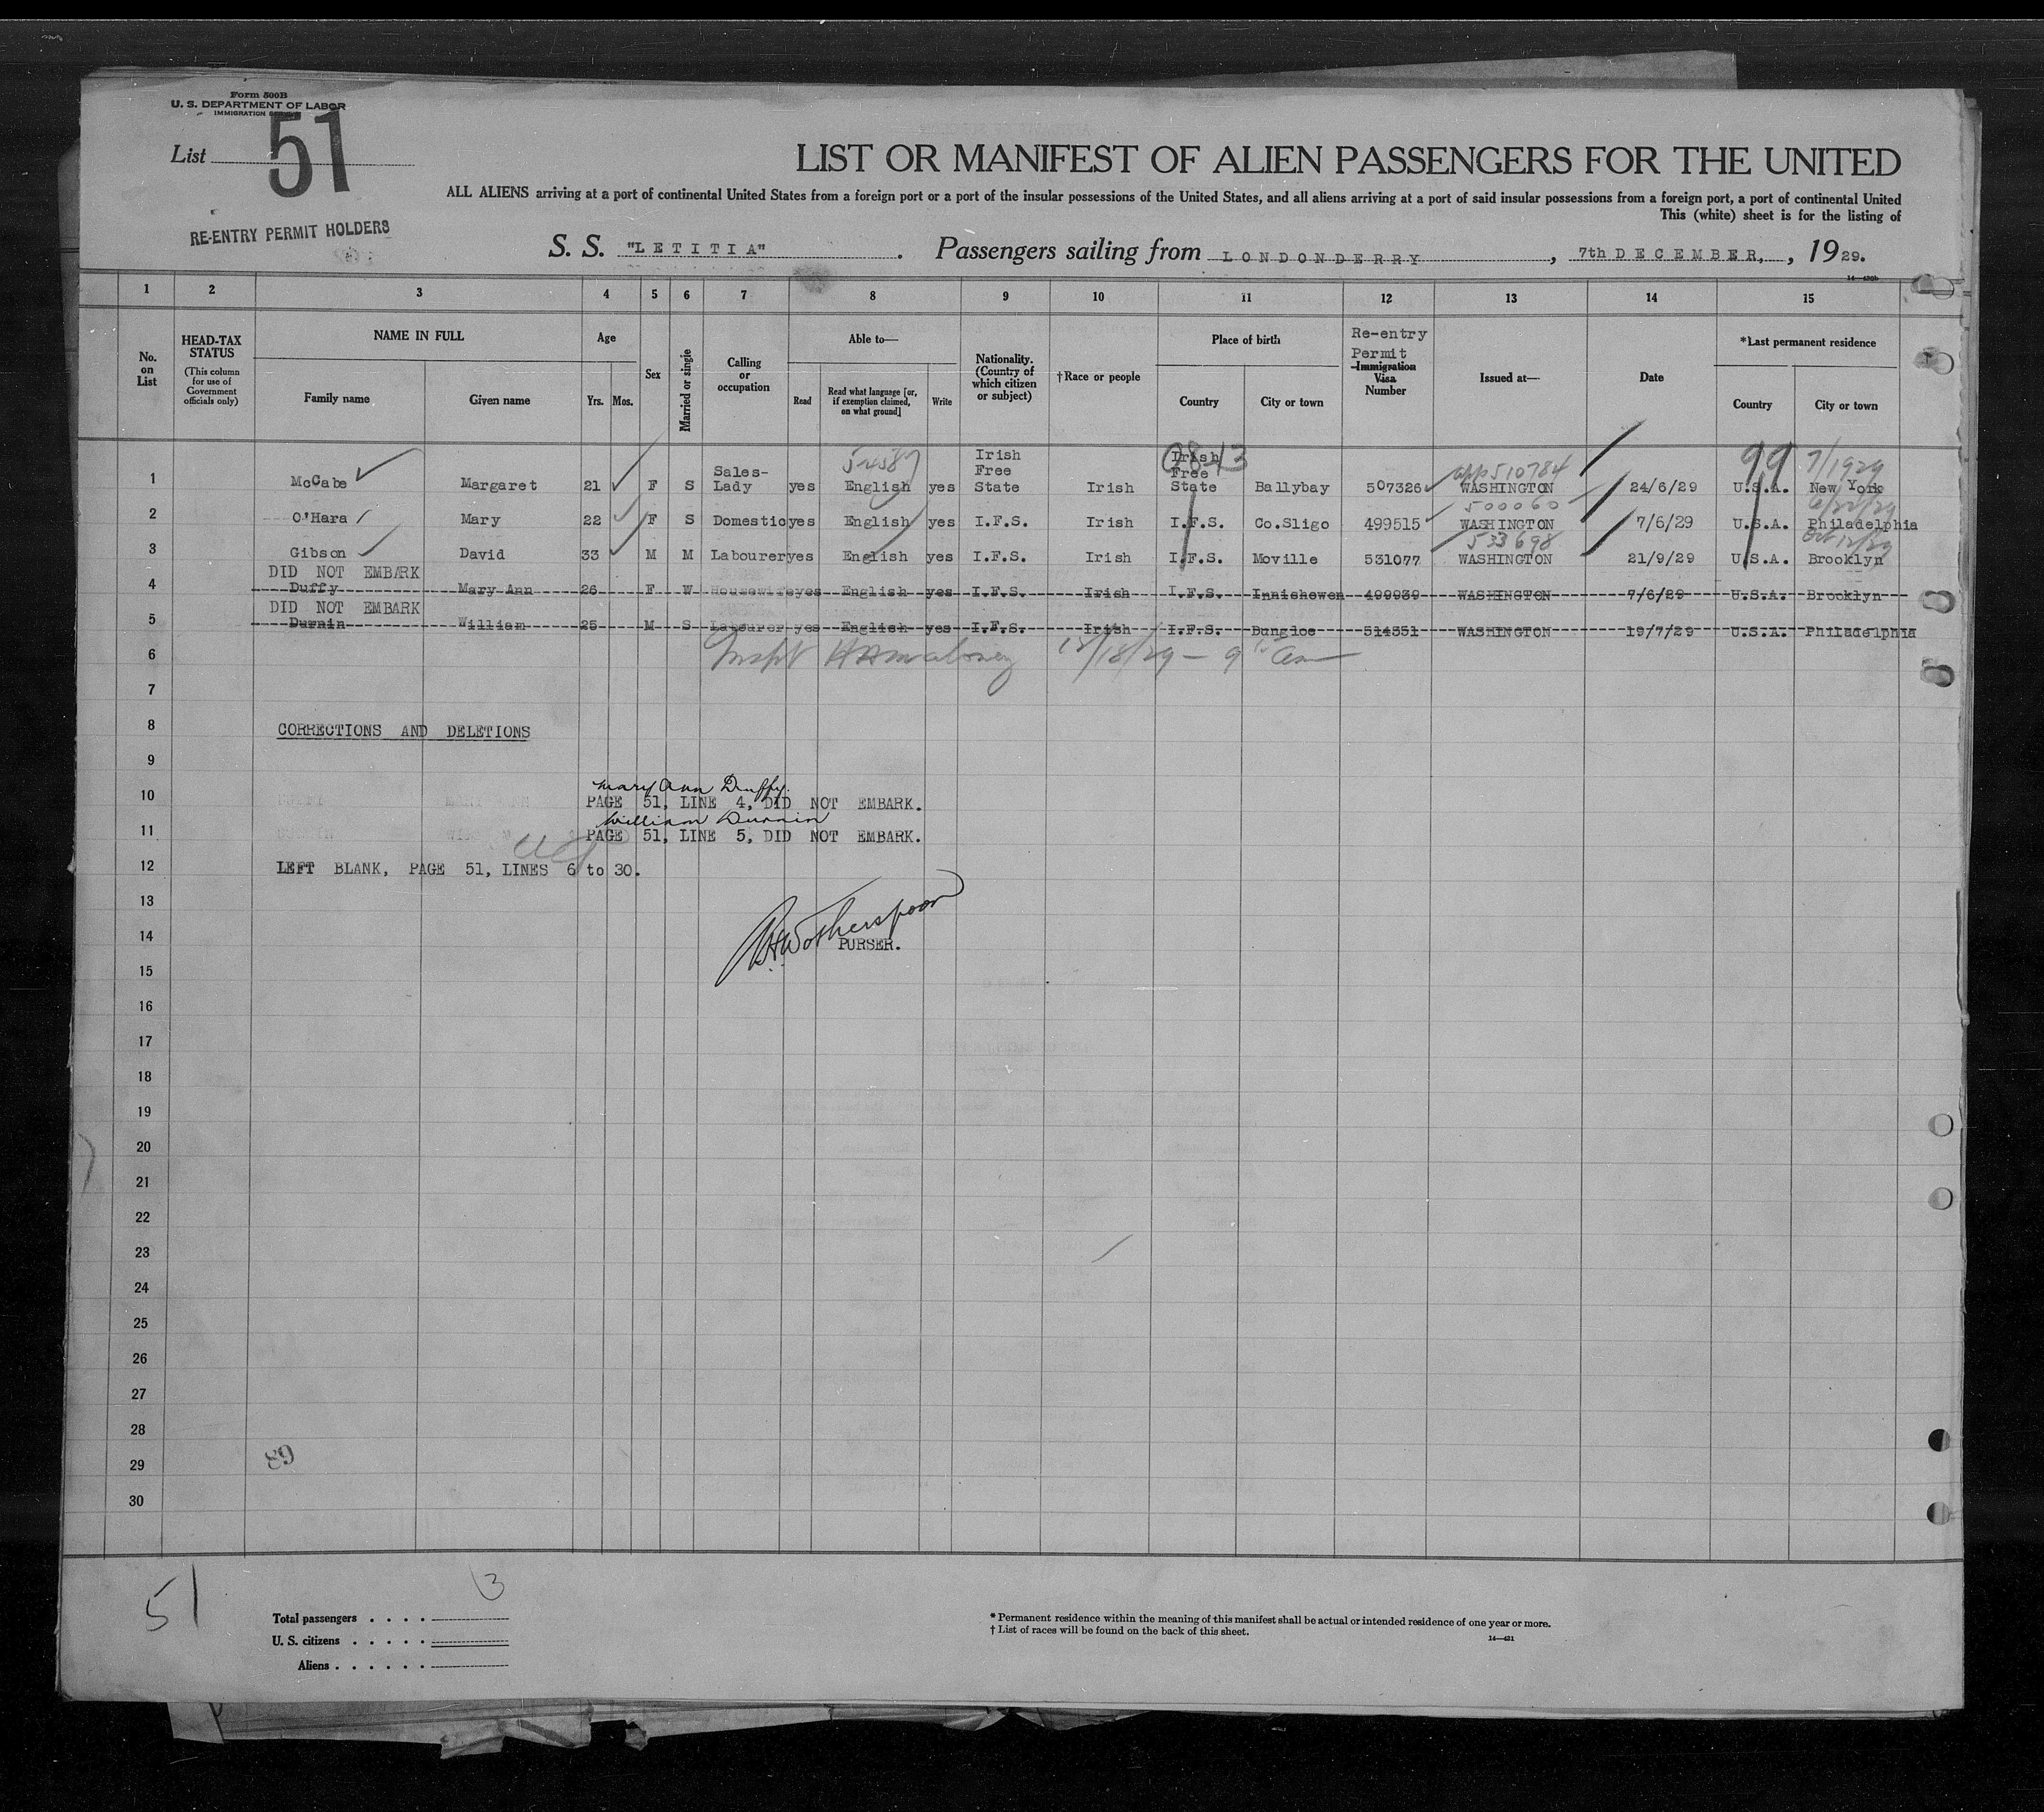 Form 500B
U. S. DEPARTMENT OF LABOR
IMMIGRATION
List 51
LIST OR MANIFEST OF ALIEN PASSENGERS FOR THE UNITED
ALL ALIENS arriving at a port of continental United States from a foreign port or a port of the insular possessions of the United States, and all aliens arriving at a port of said insular possessions from a foreign port, a port of continental United
This (white) sheet is for the listing of
RE-ENTRY PERMIT HOLDERS
S. S. "LETITIA". Passengers sailing from LONDONDERRY, 7th DECEMBER, , 1929.
14-430b
1 2 3 4 5 6 7 8 9 10 11 12 13 14 15
No. on List
HEAD-TAX STATUS (This column for use of Government officials only)
NAME IN FULL Family name Given name
Age Yrs. Mos.
Sex
Married or single
Calling or occupation
Able to— Read Read what language [or, if exemption claimed, on what ground] Write
Nationality. (Country of which citizen or subject)
†Race or people
Place of birth Country City or town
Re-entry Permit Immigration Visa Number
Issued at—
Date
*Last permanent residence Country City or town
54587 28-13 app 510784 99 7/1929
1 McCabe Margaret 21 F S Sales-Lady yes English yes Irish Free State Irish Irish Free State Ballybay 507326 WASHINGTON 24/6/29 U.S.A. New York
500060 6/22/29
2 O'Hara Mary 22 F S Domestic yes English yes I.F.S. Irish I.F.S. Co.Sligo 499515 WASHINGTON 7/6/29 U.S.A. Philadelphia
533698 Oct 12/29
3 Gibson David 33 M M Labourer yes English yes I.F.S. Irish I.F.S. Moville 531077 WASHINGTON 21/9/29 U.S.A. Brooklyn
DID NOT EMBARK
4 Duffy Mary Ann 26 F W Housewife yes English yes I.F.S. Irish I.F.S. Innishowen 499939 WASHINGTON 7/6/29 U.S.A. Brooklyn
DID NOT EMBARK
5 Durnin William 25 M S Labourer yes English yes I.F.S. Irish I.F.S. Dungloe 514351 WASHINGTON 19/7/29 U.S.A. Philadelphia
6 Inspt HAMaloney 12/18/29 - 9 am
7
8 CORRECTIONS AND DELETIONS
9
Mary Ann Duffy.
10 PAGE 51, LINE 4, DID NOT EMBARK.
William Durnin
11 PAGE 51, LINE 5, DID NOT EMBARK.
12 LEFT BLANK, PAGE 51, LINES 6 to 30.
13
Wotherspoon
14 PURSER.
15
16
17
18
19
20
21
22
23
24
25
26
27
28
29 89
30
51
3
Total passengers
U. S. citizens
Aliens
* Permanent residence within the meaning of this manifest shall be actual or intended residence of one year or more.
† List of races will be found on the back of this sheet.
14-431